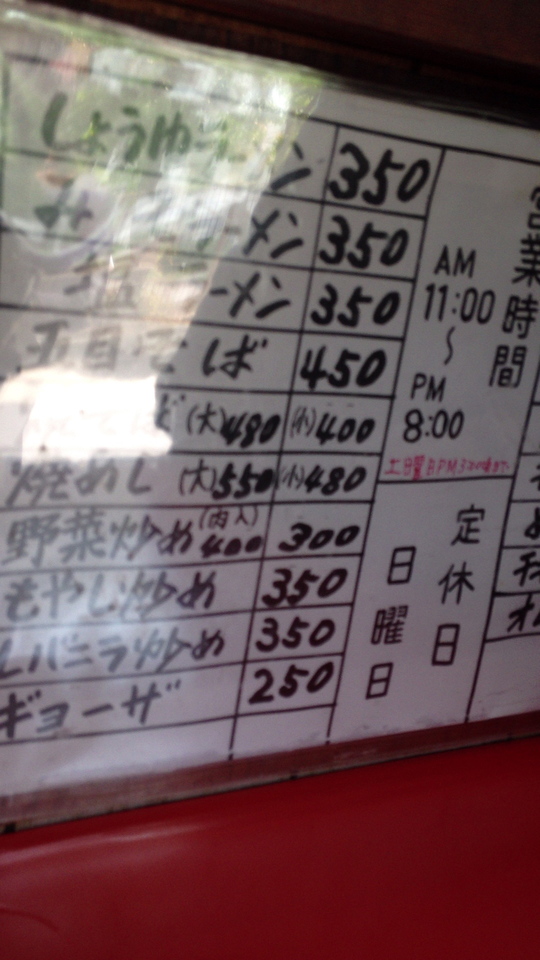 しょうゆラーメン 350
みそラーメン 350
塩ラーメン 350
五目そば 450
(大)480 (小)400
焼めし (大)550 (小)480
野菜炒め (肉入)400 300
もやし炒め 350
レバニラ炒め 350
ギョーザ 250
営業時間
AM
11:00
〜
PM
8:00
定休日
日曜日